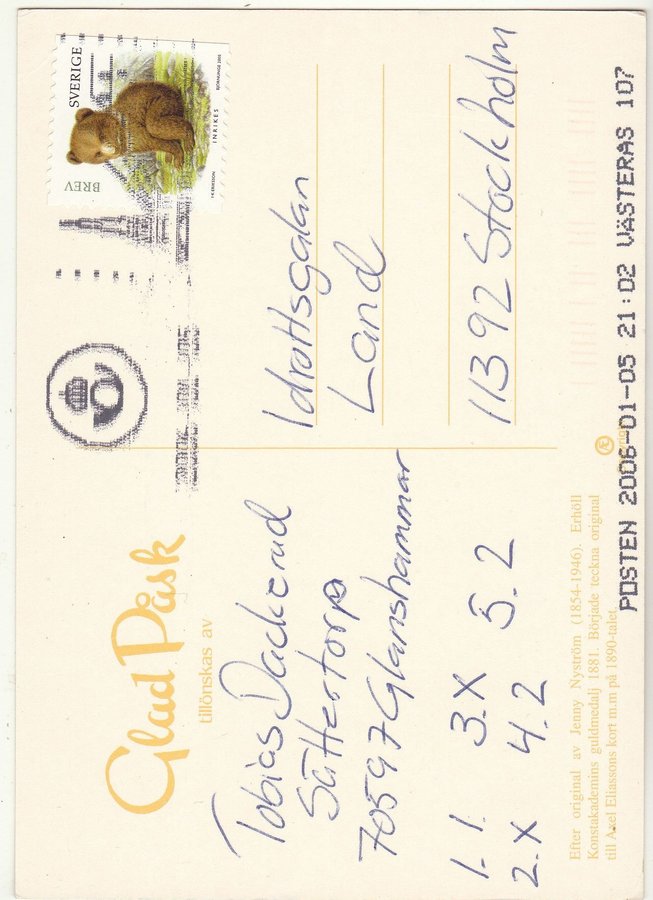 SVERIGE
BREV
INRIKES
BJÖRNUNGE 2005
POSTEN 2006-01-05 21:02 VÄSTERÅS 107
Glad Påsk
tillönskas av
Tobias Dackerud
Sättertorp
70597 Glanshammar
1. 1. 3. X 5. 2
2. X 4. 2
Idrottsgalan
Land
11392 Stockholm
Efter original av Jenny Nyström (1854-1946). Erhöll
Konstakademins guldmedalj 1881. Började teckna original
till Axel Eliassons kort m.m på 1890-talet.